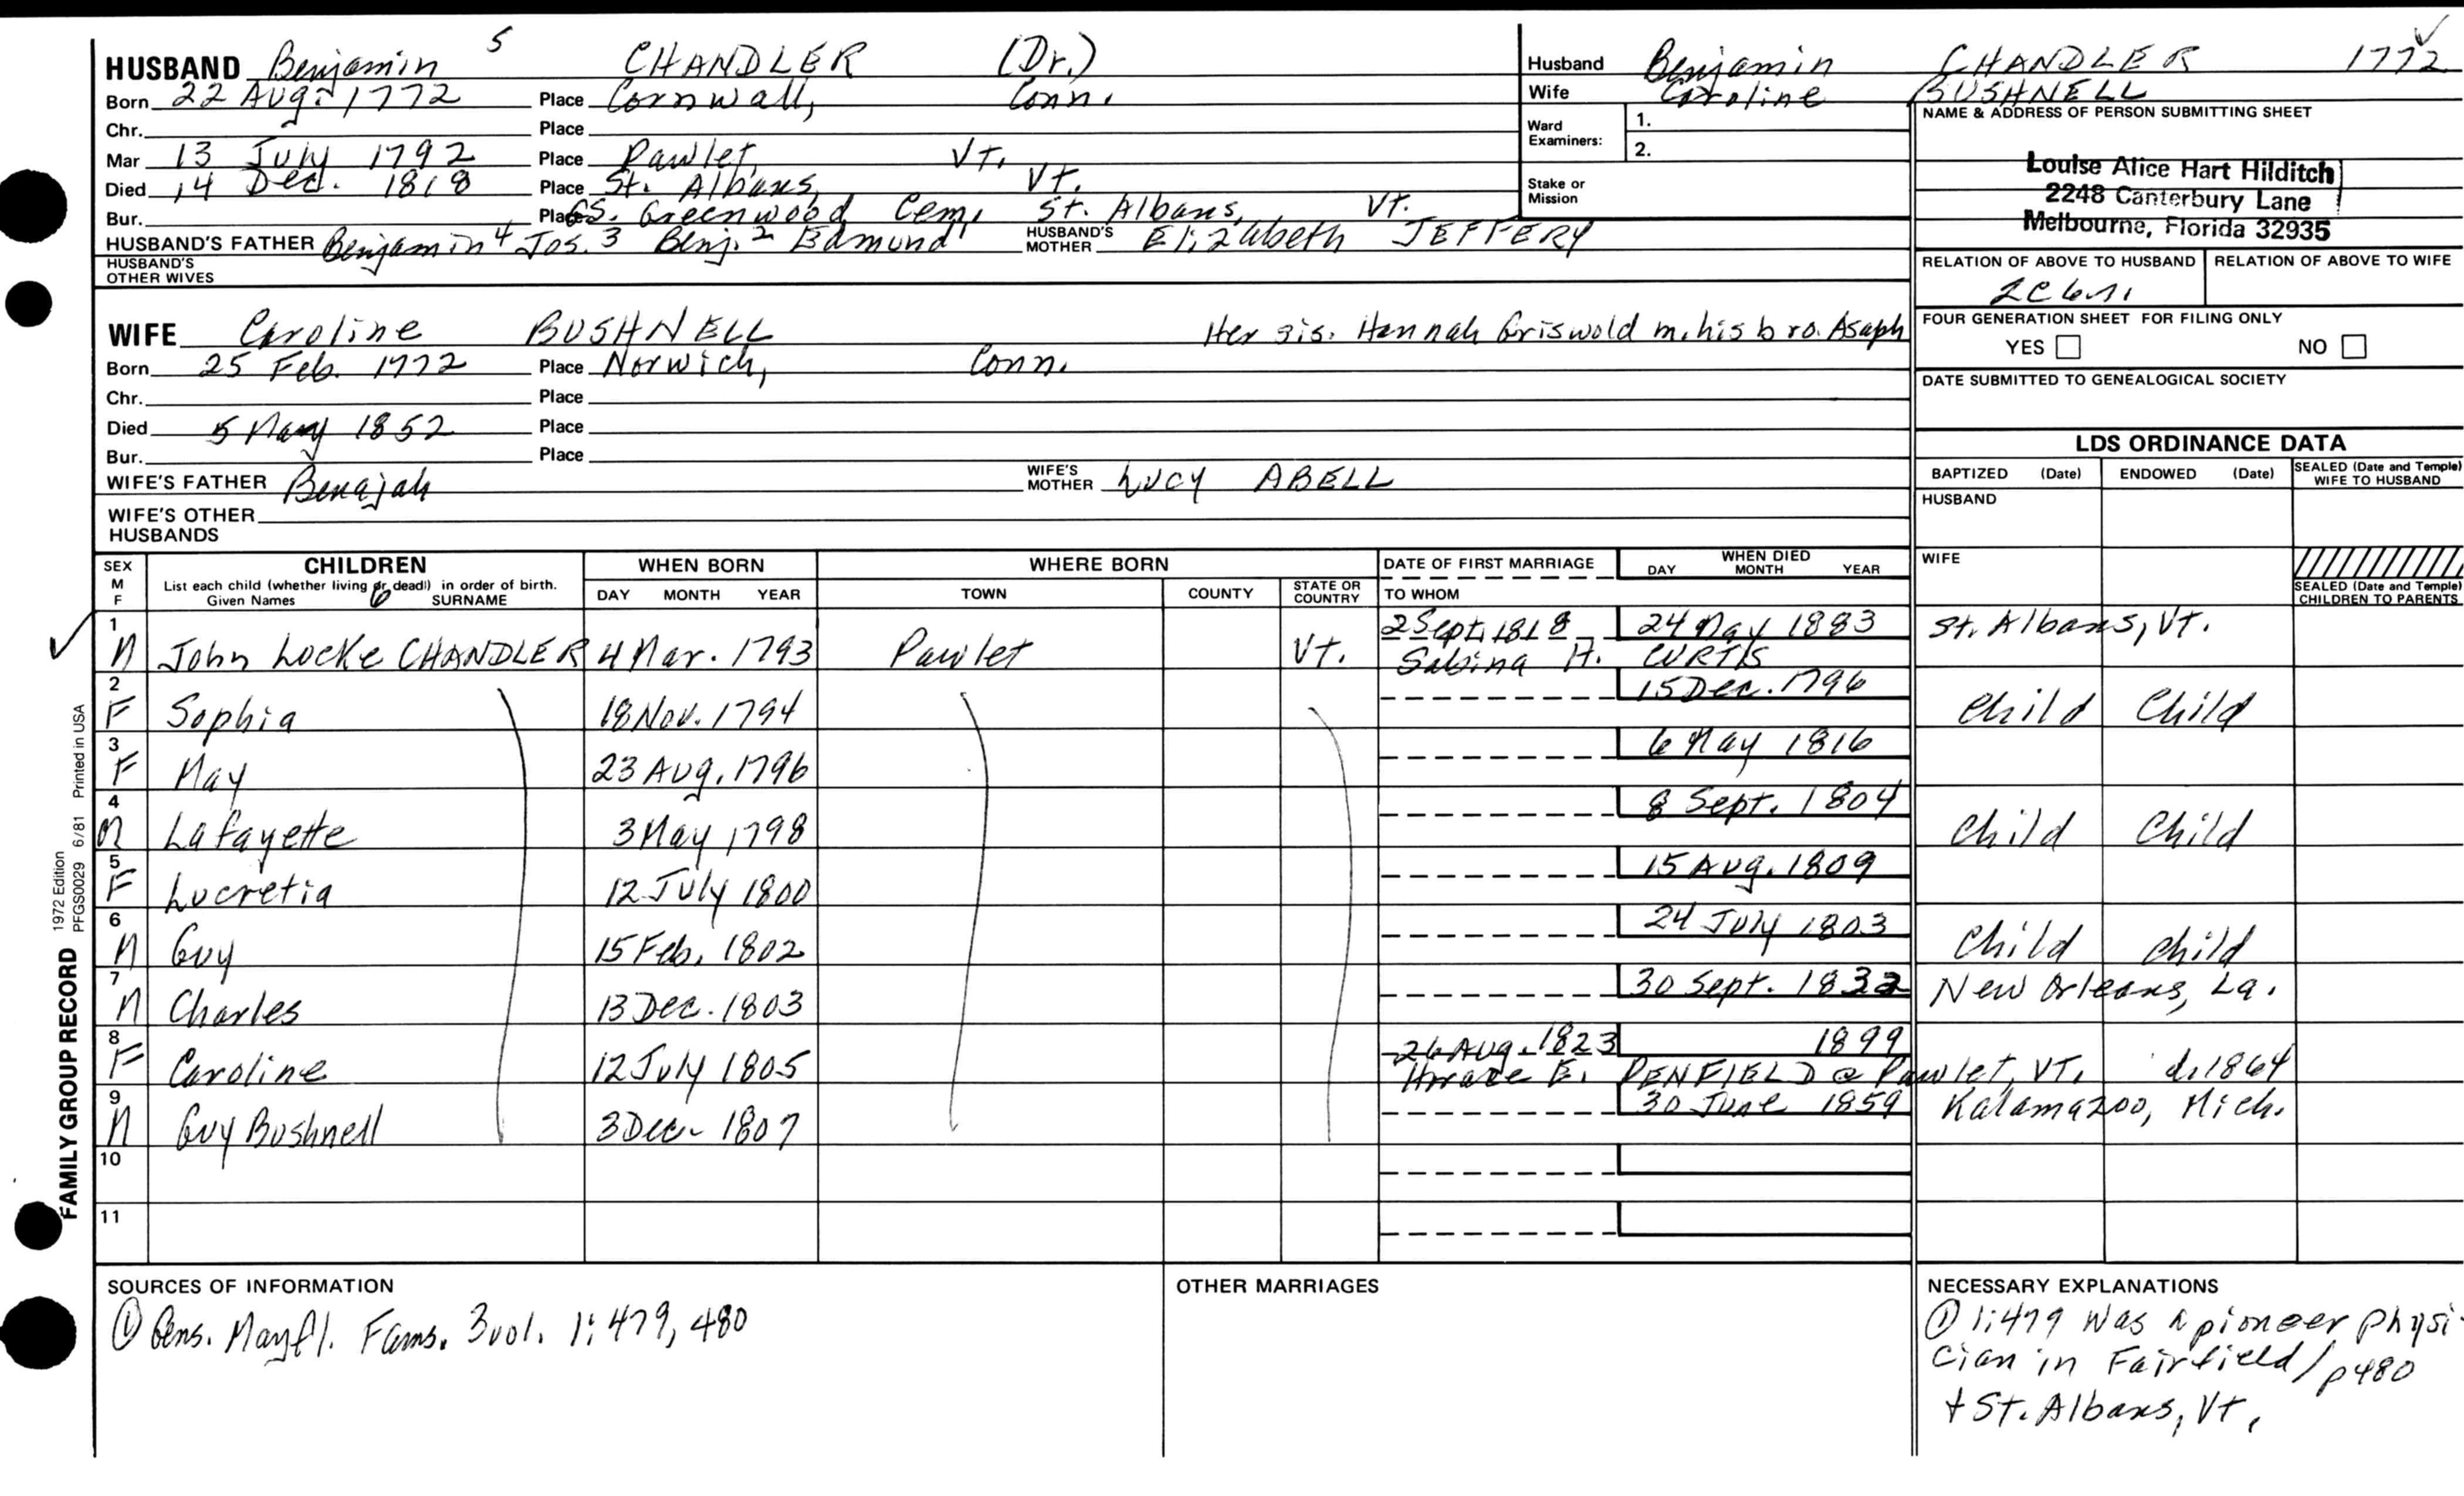 HUSBAND Benjamin 5 CHANDLER (Dr.)
Born 22 Aug. 1772 Place Cornwall, Conn.
Chr. Place
Mar 13 July 1792 Place Pawlet, Vt.
Died 14 Dec. 1818 Place St. Albans, Vt.
Bur. Place GS. Greenwood Cem, St. Albans, Vt.
HUSBAND'S FATHER Benjamin 4 Jos. 3 Benj. 2 Edmund 1 HUSBAND'S MOTHER Elizabeth JEFFERY
HUSBAND'S OTHER WIVES
Husband Benjamin CHANDLER 1772
Wife Caroline BUSHNELL
Ward Examiners: 1.
2.
Stake or Mission
NAME & ADDRESS OF PERSON SUBMITTING SHEET
Louise Alice Hart Hilditch
2248 Canterbury Lane
Melbourne, Florida 32935
RELATION OF ABOVE TO HUSBAND RELATION OF ABOVE TO WIFE
FOUR GENERATION SHEET FOR FILING ONLY
YES NO
DATE SUBMITTED TO GENEALOGICAL SOCIETY
WIFE Caroline BUSHNELL Her sis. Hannah Griswold m. his bro. Asaph
Born 25 Feb. 1772 Place Norwich, Conn.
Chr. Place
Died 5 May 1852 Place
Bur. Place
WIFE'S FATHER Benajah WIFE'S MOTHER Lucy ABELL
WIFE'S OTHER HUSBANDS
LDS ORDINANCE DATA
BAPTIZED (Date) ENDOWED (Date) SEALED (Date and Temple) WIFE TO HUSBAND
HUSBAND
WIFE
SEALED (Date and Temple) CHILDREN TO PARENTS
SEX M F CHILDREN WHEN BORN WHERE BORN DATE OF FIRST MARRIAGE WHEN DIED
List each child (whether living or dead) in order of birth.
Given Names SURNAME DAY MONTH YEAR TOWN COUNTY STATE OR COUNTRY TO WHOM DAY MONTH YEAR
1 M John Locke CHANDLER 4 Mar. 1793 Pawlet Vt. 2 Sept. 1818 24 May 1883 St. Albans, Vt.
Sabina H. CURTIS
2 F Sophia 18 Nov. 1794 15 Dec. 1796 Child Child
3 F May 23 Aug. 1796 6 May 1816
4 M Lafayette 3 May 1798 8 Sept. 1804 Child Child
5 F Lucretia 12 July 1800 15 Aug. 1809
6 M Guy 15 Feb. 1802 24 July 1803 Child Child
7 M Charles 13 Dec. 1803 30 Sept. 1832 New Orleans, La.
8 F Caroline 12 July 1805 26 Aug. 1823 1899
Horace E. PENFIELD @ Pawlet, VT. d. 1864
9 M Guy Bushnell 3 Dec. 1807 30 June 1859 Kalamazoo, Mich.
10
11
SOURCES OF INFORMATION
① Gens. Mayfl. Fams. 3 vol. 1:479, 480
OTHER MARRIAGES
NECESSARY EXPLANATIONS
① 1:479 Was a pioneer physi-
cian in Fairfield / p480
+ St. Albans, Vt.
FAMILY GROUP RECORD 1972 Edition
PFGS0029 6/81 Printed in USA